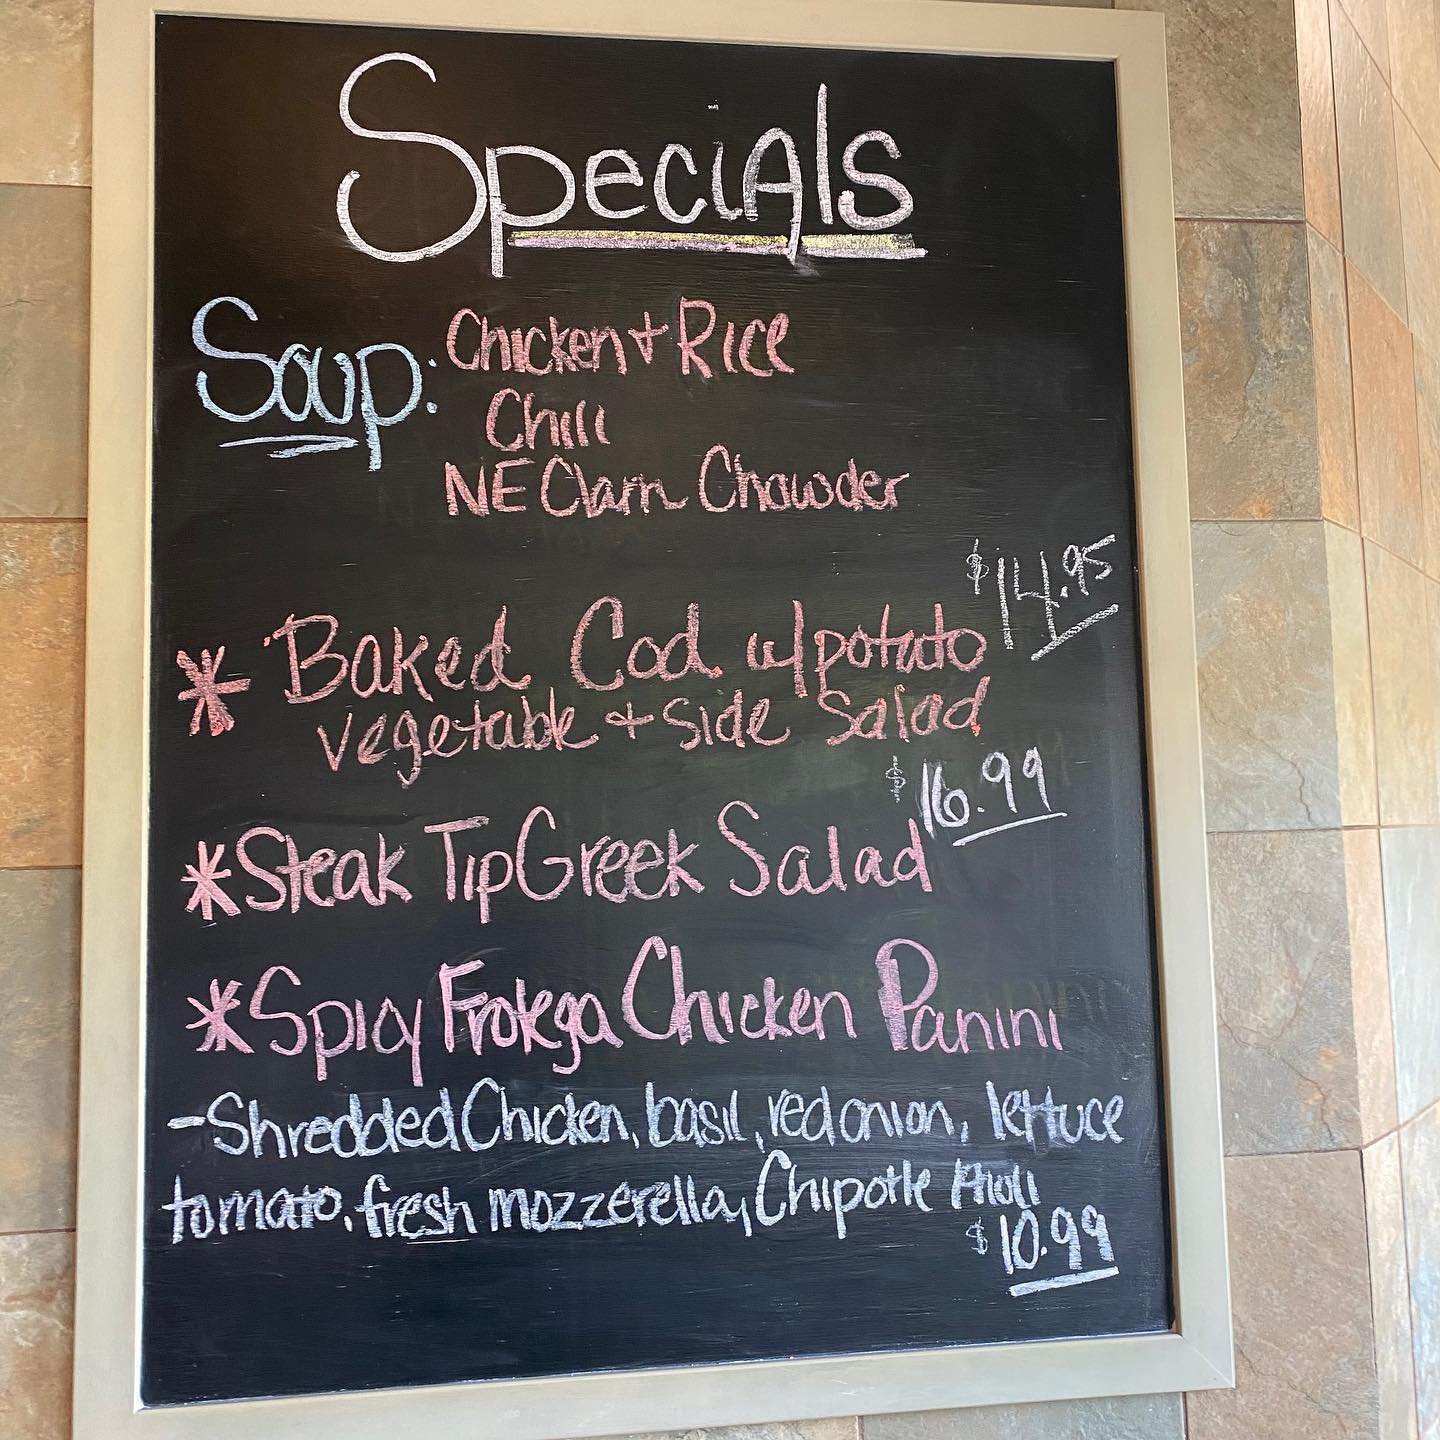 Specials
Soup: Chicken + Rice
Chili
NE Clam Chowder
$14.95
* Baked Cod w/potato
vegetable + side salad
$16.99
* Steak Tip Greek Salad
* Spicy Frokega Chicken Panini
- Shredded Chicken, basil, red onion, lettuce
tomato, fresh mozzerella, Chipotle Aioli
$10.99